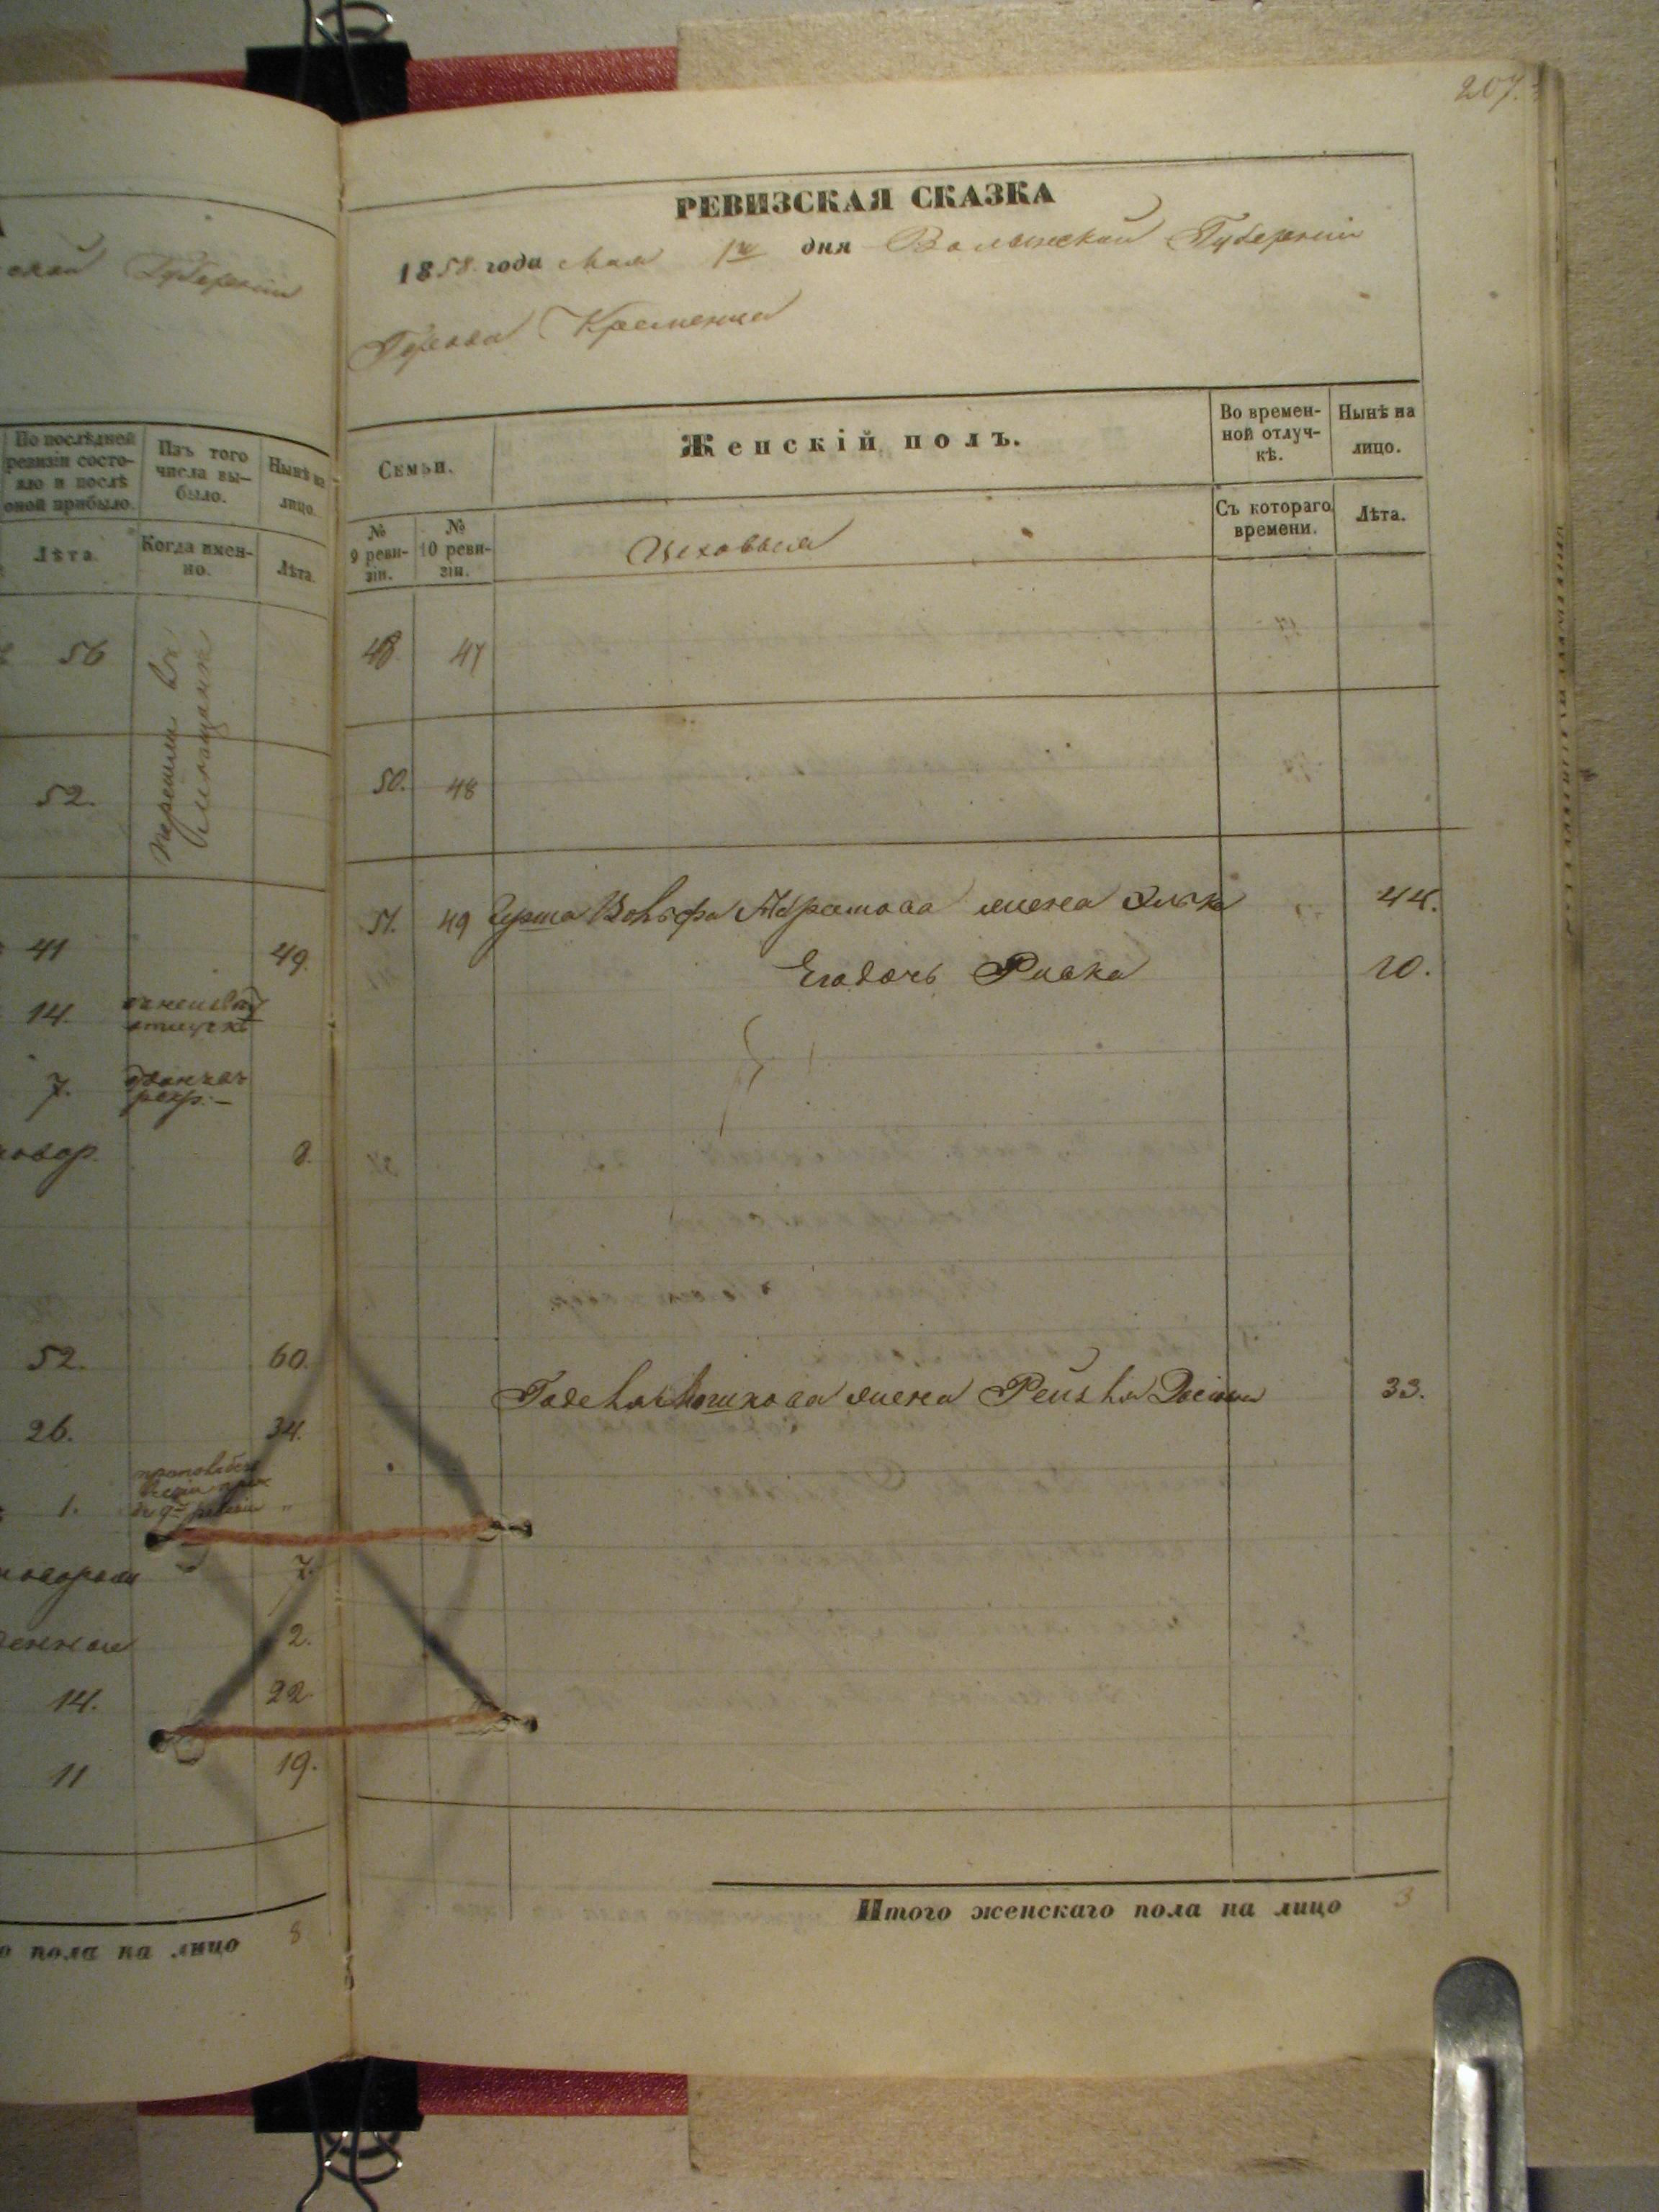 207.
РЕВИЗСКАЯ СКАЗКА
1858 года Мая 1го дня Волынской Губерніи
Города Кременца
ской Губерніи
По послѣдней ревизіи состояло и послѣ оной прибыло.
Изъ того числа выбыло.
Нынѣ на лицо.
Лѣта.
Когда именно.
Лѣта.
56
Перешли въ
52.
41
49.
14.
7.
8.
52.
60.
26.
34.
1.
7.
2.
14.
22
11
19.
о пола на лицо 8
Семьи.
Женскій полъ.
Во временной отлучкѣ.
Нынѣ на лицо.
№ 9 ревизіи.
№ 10 ревизіи.
Цеховыя
Съ котораго времени.
Лѣта.
48. 47
50. 48
51. 49 Герша Вольфа Абрамова жена Элька 44.
Его дочь Ривка 10.
жена Рейзля 33.
Итого женскаго пола на лицо 3